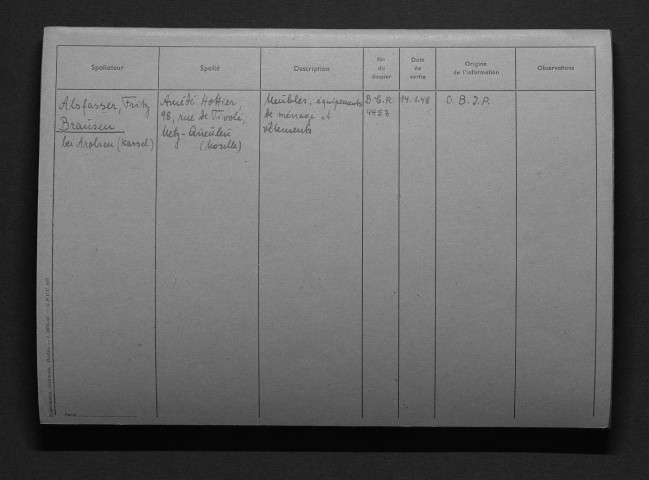 Spoliateur
Spolié
Description
No
du
dossier
Date
de
sortie
Origine
de l'information
Observations
Alsfasser, Fritz
Brausen
bei Arolsen (Kassel)
Amédé Hottier,
98, rue de Tivoli,
Metz-Queuleu
(Moselle)
Meubles, équipements
de ménage et
vêtements
B.C.R.
4453
14.1.48
O. B. I. P.